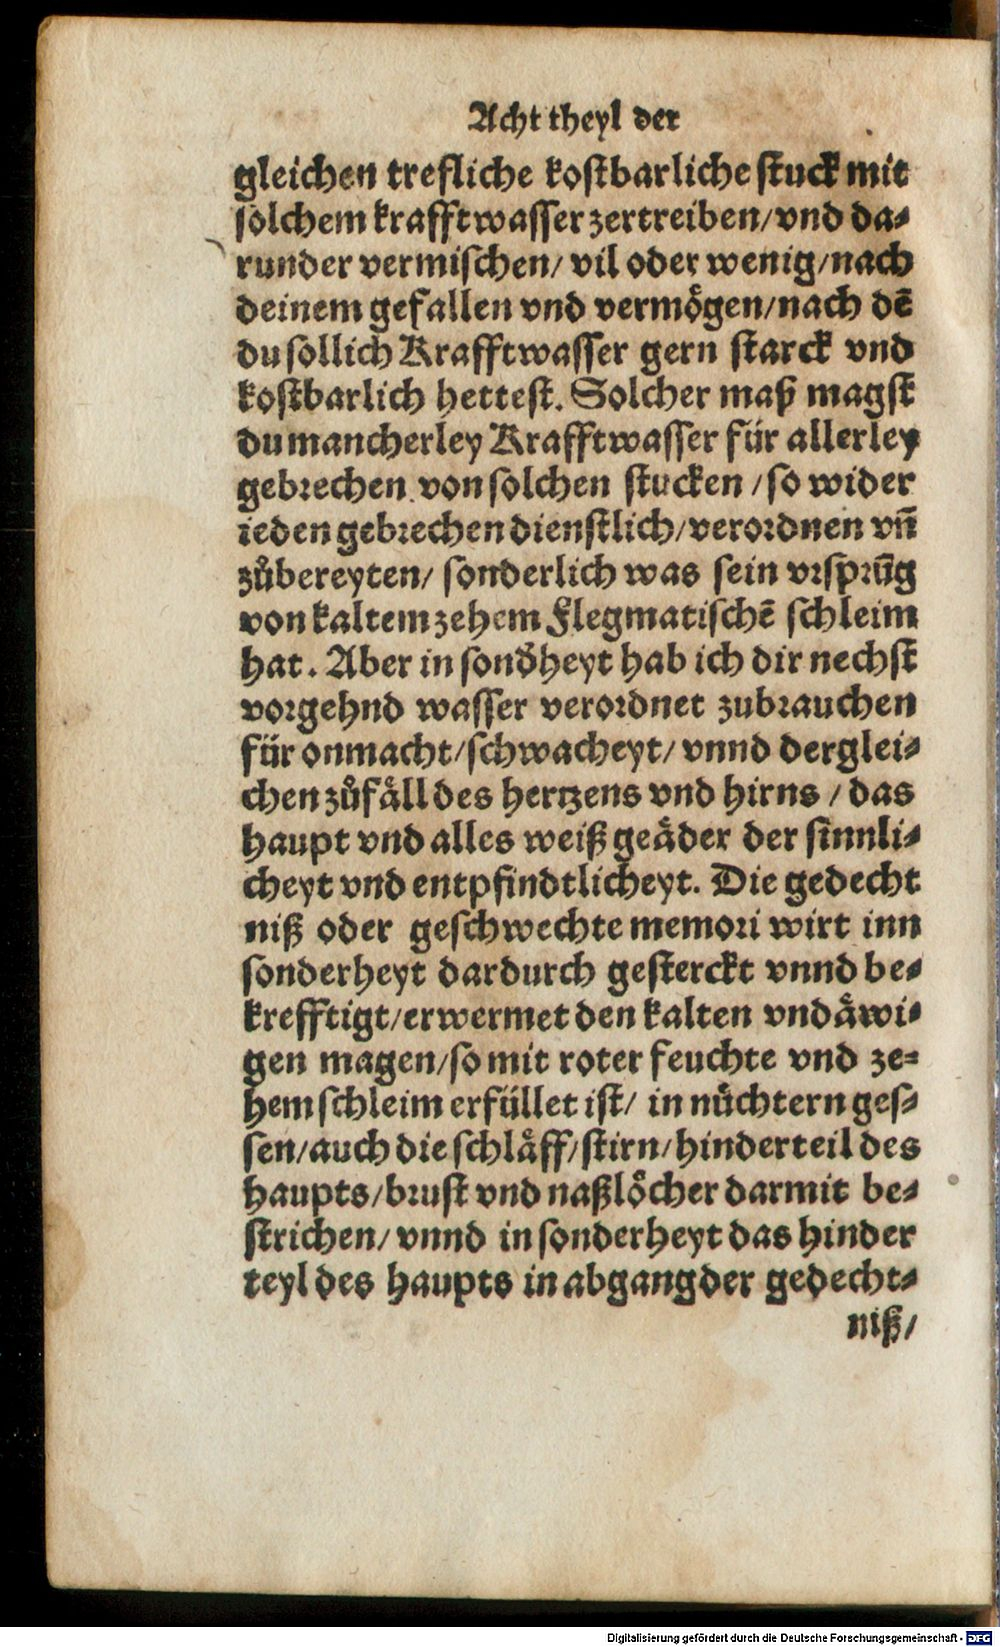 Acht theyl der
gleichen trefliche kostbarliche stuck mit
solchem krafftwasser zertreiben/ vnd da⸗
runder vermischen/ vil oder wenig/ nach
deinem gefallen vnd vermoͤgen/ nach dē
du sollich Krafftwasser gern starck vnd
kostbarlich hettest. Solcher maß magst
du mancherley Krafftwasser für allerley
gebrechen von solchen stucken / so wider
ieden gebrechen dienstlich/ verordnen vn̄
zůbereyten/ sonderlich was sein vrsprūg
von kaltem zehem Flegmatischē schleim
hat. Aber in sond̓heyt hab ich dir nechst
vorgehnd wasser verordnet zubrauchen
für onmacht/ schwacheyt/ vnnd derglei⸗
chen zůfaͤll des hertzens vnd hirns / das
haupt vnd alles weiß geaͤder der sinnli⸗
cheyt vnd entpfindtlicheyt. Die gedecht
niß oder geschwechte memori wirt inn
sonderheyt dardurch gesterckt vnnd be⸗
krefftigt/ erwermet den kalten vnd aͤwi⸗
gen magen/ so mit roter feuchte vnd ze⸗
hem schleim erfüllet ist/ in nuͤchtern ges⸗
sen/ auch die schlaͤff/ stirn/ hinderteil des
haupts/ brust vnd naßloͤcher darmit be⸗
strichen/ vnnd in sonderheyt das hinder
teyl des haupts in abgang der gedecht⸗
niß/
Digitalisierung gefördert durch die Deutsche Forschungsgemeinschaft - DFG